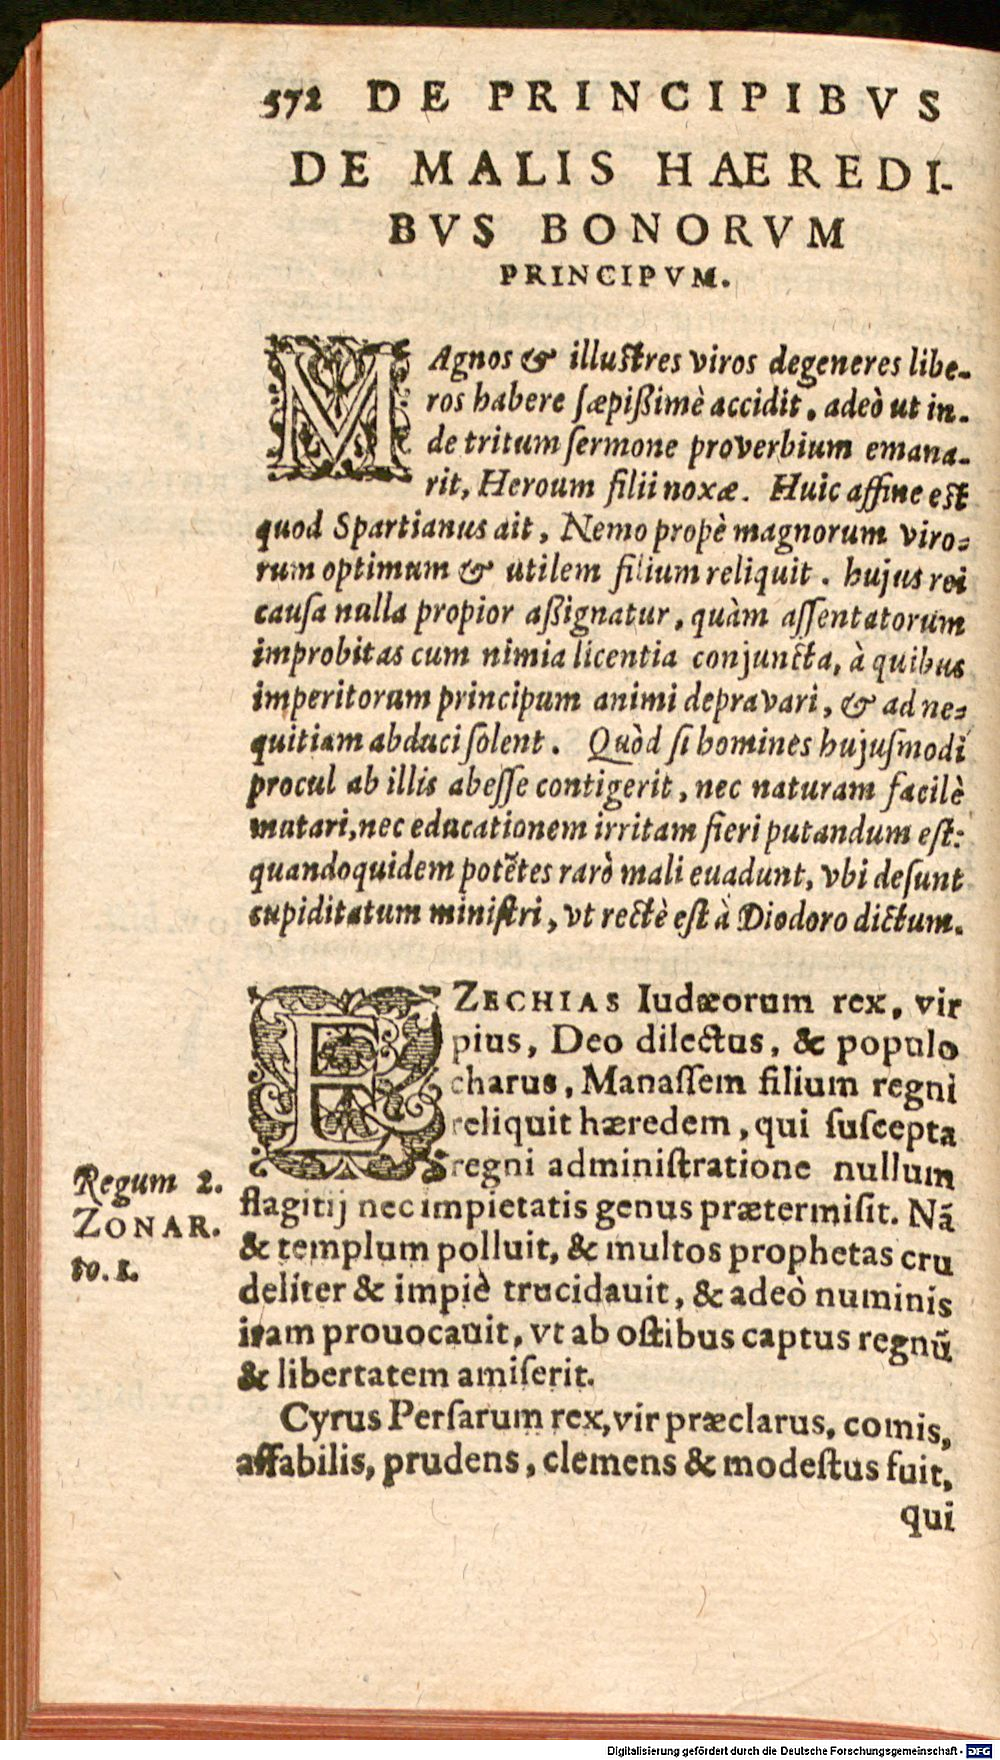 572 DE PRINCIPIBVS
DE MALIS HAEREDI-
BVS BONORVM
PRINCIPVM.
MAgnos & illuſtres viros degeneres libe-
ros habere ſæpißimè accidit, adeò ut in-
de tritum ſermone proverbium emana-
rit, Heroum filii noxæ. Huic affine eſt
quod Spartianus ait, Nemo propè magnorum viro-
rum optimum & utilem filium reliquit. hujus rei
cauſa nulla propior aßignatur, quàm aſſentatorum
improbitas cum nimia licentia conjuncta, à quibus
imperitorum principum animi depravari, & ad ne-
quitiam abduci ſolent. Quòd ſi homines hujuſmodi
procul ab illis abeſſe contigerit, nec naturam facilè
mutari, nec educationem irritam fieri putandum eſt:
quandoquidem potẽtes rarò mali euadunt, vbi deſunt
cupiditatum miniſtri, vt rectè eſt à Diodoro dictum.
EZECHIAS Iudæorum rex, vir
pius, Deo dilectus, & populo
charus, Manaſſem filium regni
reliquit hæredem, qui ſuſcepta
regni adminiſtratione nullum
flagitij nec impietatis genus prætermiſit. Nã
& templum polluit, & multos prophetas cru
deliter & impiè trucidauit, & adeò numinis
iram prouocauit, vt ab oſtibus captus regnũ
& libertatem amiſerit.
Regum 2.
ZONAR.
to. 1.
Cyrus Perſarum rex, vir præclarus, comis,
affabilis, prudens, clemens & modeſtus fuit,
qui
Digitalisierung gefördert durch die Deutsche Forschungsgemeinschaft - DFG